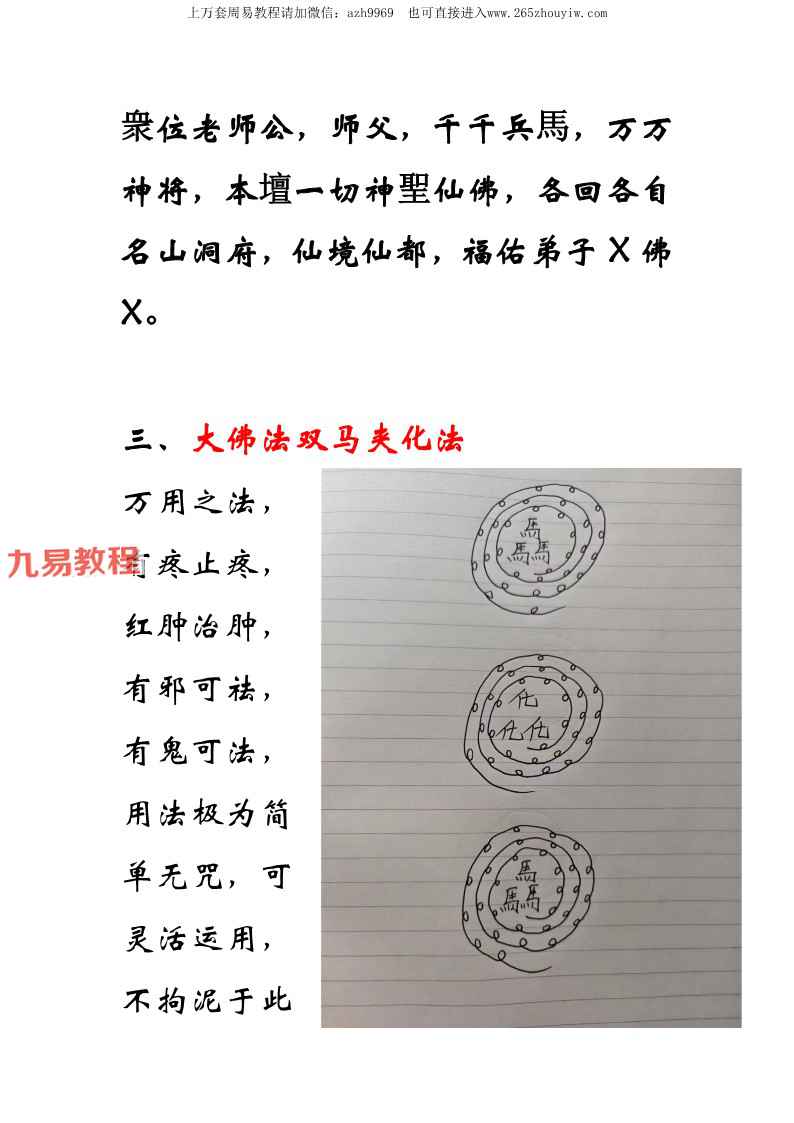 上万套周易教程请加微信：azh9969 也可直接进入www.265zhouyiw.com
衆位老师公，师父，千千兵馬，万万
神将，本壇一切神聖仙佛，各回各自
名山洞府，仙境仙都，福佑弟子 X 佛
X。
三、大佛法双马夹化法
万用之法，
九易教程
疼止疼，
红肿治肿，
有邪可祛，
有鬼可法，
用法极为简
单无咒，可
灵活运用，
不拘泥于此
馬
馬馬
化
化化
馬
馬馬